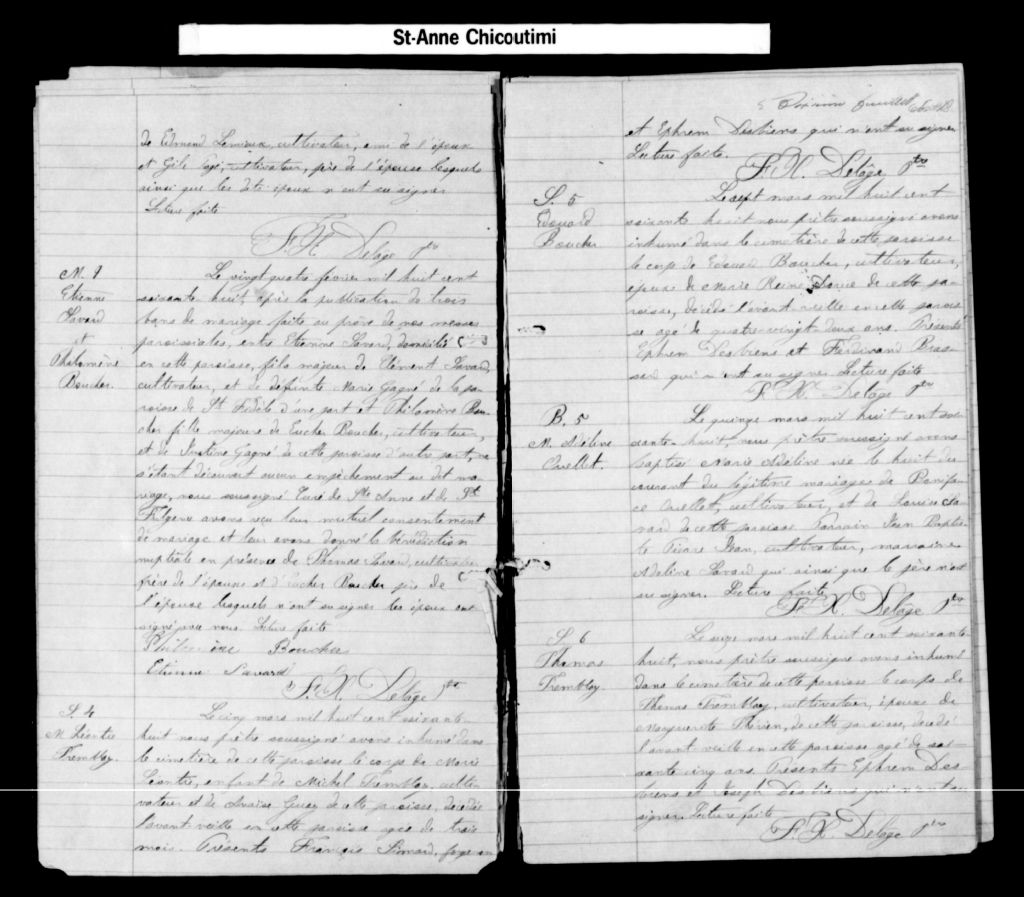 St-Anne Chicoutimi
de Edmond Lemieux, cultivateur, ami de l'époux
et Gile cultivateur, père de l'épouse lesquels
ainsi que les dits époux n'ont su signer
Lecture faite
F. X. Delâge Ptre
M. 9
Etienne
Savard
et
Philomène
Boucher.
Le vingt quatre février mil huit cent
soixante-huit, après la publication de trois
bans de mariage faite au prône de nos messes
paroissiales, entre Etienne Savard, domicilié
en cette paroisse, fils majeur de Clément Savard,
cultivateur, et de défunte Marie Gagné de la pa-
roisse de St Fidèle d'une part et Philomène Bou-
cher fille majeure de Eucher Boucher, cultivateur,
et de Justine Gagné de cette paroisse d'autre part, ne
s'étant découvert aucun empêchement au dit ma-
riage, nous soussigné Curé de Ste Anne et de St
Fulgence avons reçu leur mutuel consentement
de mariage et leur avons donné la bénédiction
nuptiale en présence de Thomas Savard, cultivateur
frère de l'époux et d'Eucher Boucher père de
l'épouse lesquels n'ont su signer les époux ont
signé avec nous Lecture faite
Philomène Boucher
Etienne Savard
F. X. Delâge Ptre
S. 4
M. Léontie
Tremblay.
Le cinq mars mil huit cent soixante-
huit nous prêtre soussigné avons inhumé dans
le cimetière de cette paroisse le corps de Marie
Léontie, enfant de Michel Tremblay, culti-
vateur et de Louise Guay de cette paroisse, décédée
l'avant-veille en cette paroisse agée de trois
mois. Présents François Simard,
feuillet
et Ephrem Desbiens qui n'ont su signer
Lecture faite.
F. X. Delâge Ptre
S. 5
Edouard
Boucher
Le sept mars mil huit cent
soixante huit nous prêtre soussigné avons
inhumé dans le cimetière de cette paroisse
le corps de Edouard Boucher, cultivateur,
époux de Marie Reine de cette pa-
roisse, décédé l'avant-veille en cette parois-
se agé de quatre-vingt-deux ans. Présents
Ephrem Desbiens et Ferdinand Bras-
sard qui n'ont su signer Lecture faite
F. X. Delâge Ptre
B. 5
M. Adéline
Ouellet.
Le quinze mars mil huit cent soi-
xante-huit, nous prêtre soussigné avons
baptisé Marie Adéline née le huit du
courant du légitime mariage de Bonifa-
ce Ouellet, cultivateur, et de Louise Sa-
vard de cette paroisse Parrain Jean Baptis-
te Picard Jean, cultivateur, marraine
Adeline Savard qui ainsi que le père n'ont
su signer. Lecture faite
F. X. Delâge Ptre
S. 6
Thomas
Tremblay.
Le seize mars mil huit cent soixante-
huit, nous prêtre soussigné avons inhumé
dans le cimetière de cette paroisse le corps de
Thomas Tremblay, cultivateur, époux de
Marguerite Thérien, de cette paroisse, décédé
l'avant veille en cette paroisse agé de soi-
xante cinq ans. Présents Ephrem Des-
biens et Joseph Desbiens qui n'ont su
signer. Lecture faite
F. X. Delâge Ptre